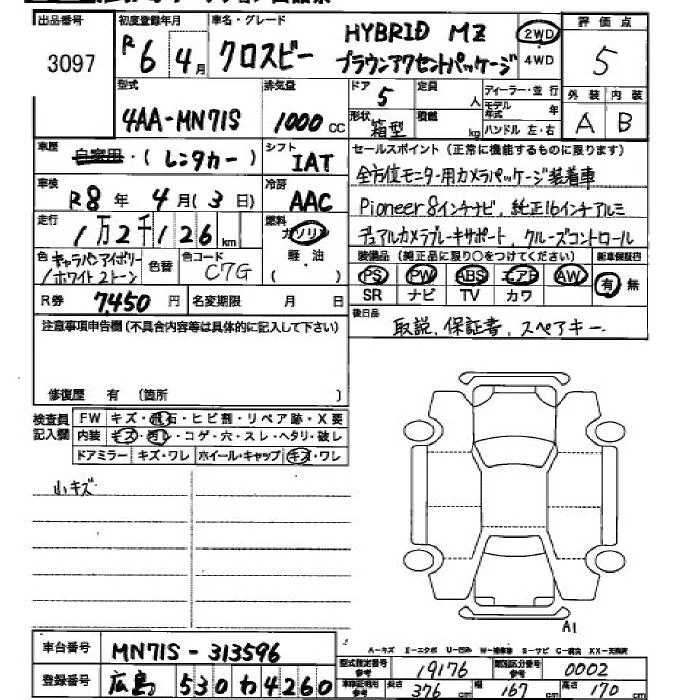 出品番号 初度登録年月 車名・グレード 評価点
3097 R6 4月 クロスビー HYBRID MZ 2WD 5
ブラウンアクセントパッケージ 4WD
型式 排気量 ドア 定員 ディーラー・並行 外装 内装
4AA-MN71S 1000 CC 5 人 モデル年式 年 A B
形状 箱型 積載 kg ハンドル 左・右
車歴 自家用・(レンタカー) シフト IAT セールスポイント(正常に機能するものに限ります)
車検 R8年 4月(3日) 冷房 AAC 全方位モニター用カメラパッケージ装着車
走行 1万2千126km 燃料 ガソリン Pioneer8インチナビ, 純正16インチアルミ
軽・油 デュアルカメラブレーキサポート, クルーズコントロール
色 キャラバンアイボリー/ホワイト2トーン 色替 色コード C7G ( )
装備品(純正品に限り○をつけてください) 新車保証書
PS PW ABS エアB AW 有 無
SR ナビ TV カワ
R券 7,450円 名変期限 月 日
後日品 取説, 保証書, スペアキー
注意事項申告欄(不具合内容等は具体的に記入して下さい)
修復歴 有 (箇所 )
検査員記入欄 FW キズ・飛石・ヒビ割・リペア跡・X要
内装 キズ・汚レ・コゲ・穴・スレ・ヘタリ・破レ
ドアミラー キズ・ワレ ホイール・キャップ キズ・ワレ
小キズ
A1
A-キズ E-エクボ U-凹み W-補修跡 S-サビ C-腐食 XX-交換済
車台番号 MN71S-313596
型式指定番号 参考 19176 類別区分番号 参考 0002
登録番号 広島 530 わ 4260
車検証記載 参考 長さ 376 cm 幅 167 cm 高さ 170 cm